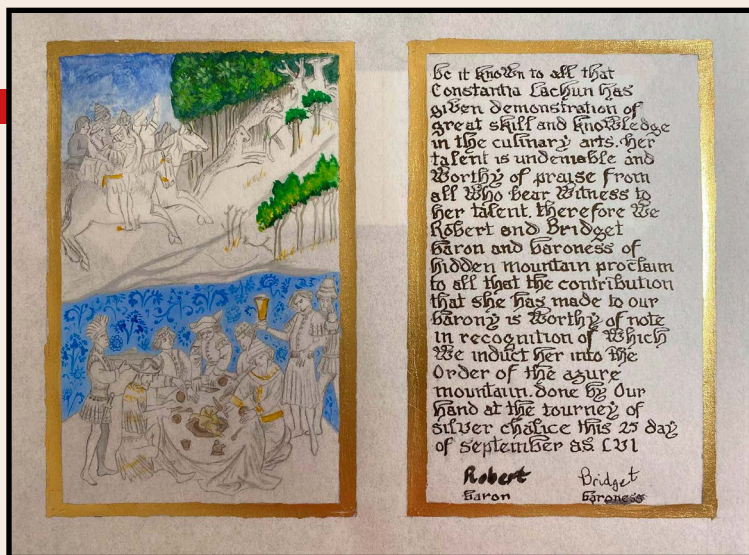 be it known to all that
Constantia Lachun has
given demonstration of
great skill and knowledge
in the culinary arts. her
talent is undeniable and
worthy of praise from
all who bear witness to
her talent. therefore we
Robert and Bridget
baron and baroness of
hidden mountain proclaim
to all that the contribution
that she has made to our
barony is worthy of note
in recognition of which
we induct her into the
Order of the azure
mountain. done by Our
hand at the tourney of
silver chalice this 25 day
of september as LVI
Robert Bridget
baron baroness